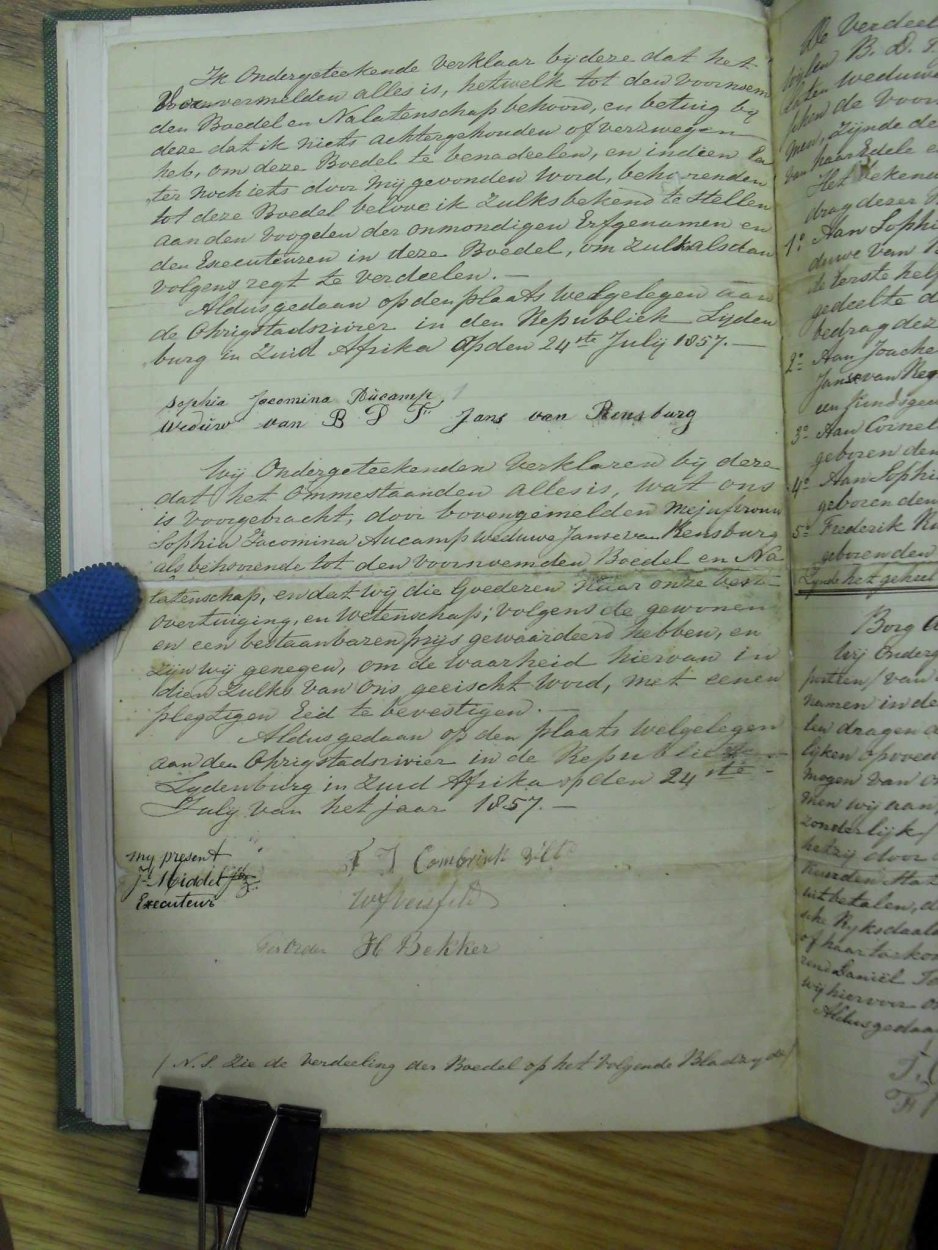 Ik Ondergeteekende verklaar bij deze dat het
Bovenvermelden alles is, hetwelk tot den voornoem
den Boedel en Nalatenschap behoord, en betuig bij
deze dat ik niets achtergehouden of verzwegen
heb, om deze Boedel te benadeelen, en indien la
ter noch iets door mij gevonden word, behoorende
tot deze Boedel beloove ik zulks bekend te stellen
aan den Voogden der onmondigen Erfgenamen en
den Executeuren in deze Boedel, om zulk alsdan
volgens regt te verdeelen. —
Aldus gedaan op den plaats Welgelegen aan
de Ohrigstadsrivier in den Republiek Lyden
burg in Zuid Afrika op den 24ste July 1857. —
Sophia Jacomina Aücamp,
Wedúw van B D F Jans van Rensburg
Wij Ondergeteekenden verklaren bij deze
dat het Ommestaanden alles is, wat ons
is voorgebracht, door bovengemelden Mejufvrouw
Sophia Jacomina Aucamp weduwe Janse van Rensburg
als behoorende tot den voornoemden Boedel en Na
latenschap, en dat wij die Goederen naar onze beste
overtuiging, en Wetenschap, volgens de gewonen
en een bestaanbaren prijs gewaardeerd hebben, en
zijn wij genegen, om de waarheid hiervan in
dien zulks van ons geeischt word, met eenen
plegtigen Eid te bevestigen. —
Aldus gedaan op den plaats welgelegen
aan den Ohrigstadsrivier in de Republiek
Lydenburg in Zuid Afrika op den 24ste
July van het jaar 1857. —
my present
J. Middel
Executeur
F J Combrink
FH Bekker
(N.S. Zie de Verdeeling der Boedel op het volgende Bladzyde)
De Verdeel
B. D.
laten weduwe
de Voor
men, zijnde de
van haar Edele e
Het bekend
drag dezer
1o Aan Sophi
duwe van
de eerste helf
gedeelte d
bedrag dez
2o Aan Joache
Janse van Ren
een
3o Aan Cornel
geboren den
4o Aan Sophi
geboren den
5o Frederik
geboren den
Zijnde het geheel
Borg
Wij Onderg
namen in de
ten dragen d
lijken op
mogen van
men wij aan,
zonderlijk
hetzij door
uitbetalen, d
sche Ryksdaald
of haar
Daniël
wij hiervoor
Aldus gedaan